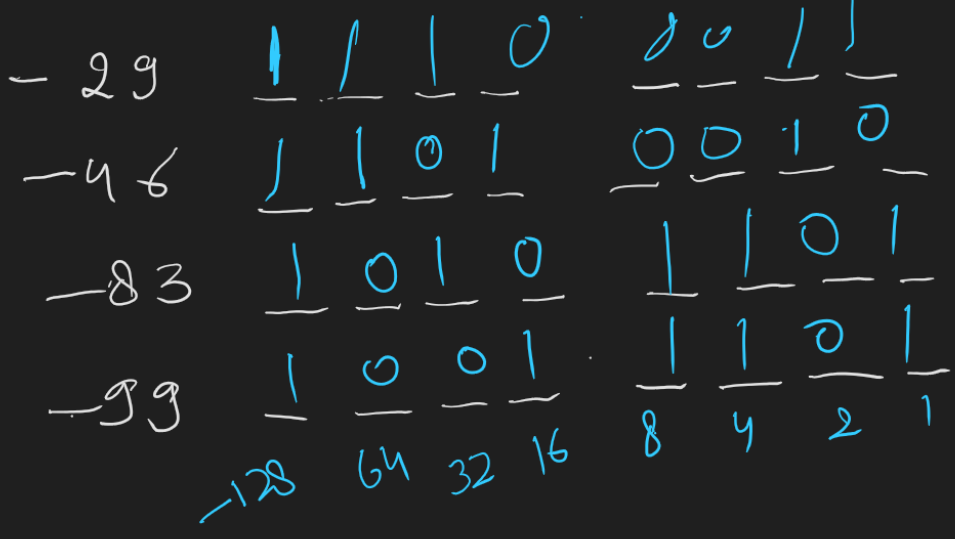 -29 1 1 1 0 0 0 1 1
-46 1 1 0 1 0 0 1 0
-83 1 0 1 0 1 1 0 1
-99 1 0 0 1 1 1 0 1
-128 64 32 16 8 4 2 1